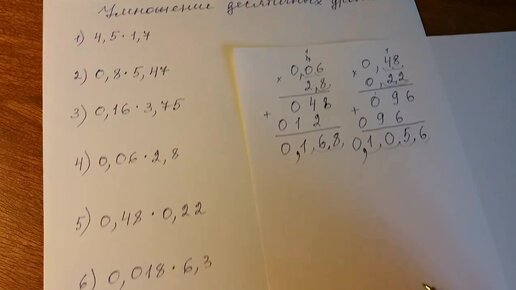 Умножение десятичных
1) 4,5 · 1,7
2) 0,8 · 5,47
3) 0,16 · 3,75
4) 0,06 · 2,8
5) 0,48 · 0,22
6) 0,018 · 6,3
× 0,06
2,8
+ 048
012
0,1,6,8,
× 0,48
0,22
+ 096
096
0,1,0,5,6